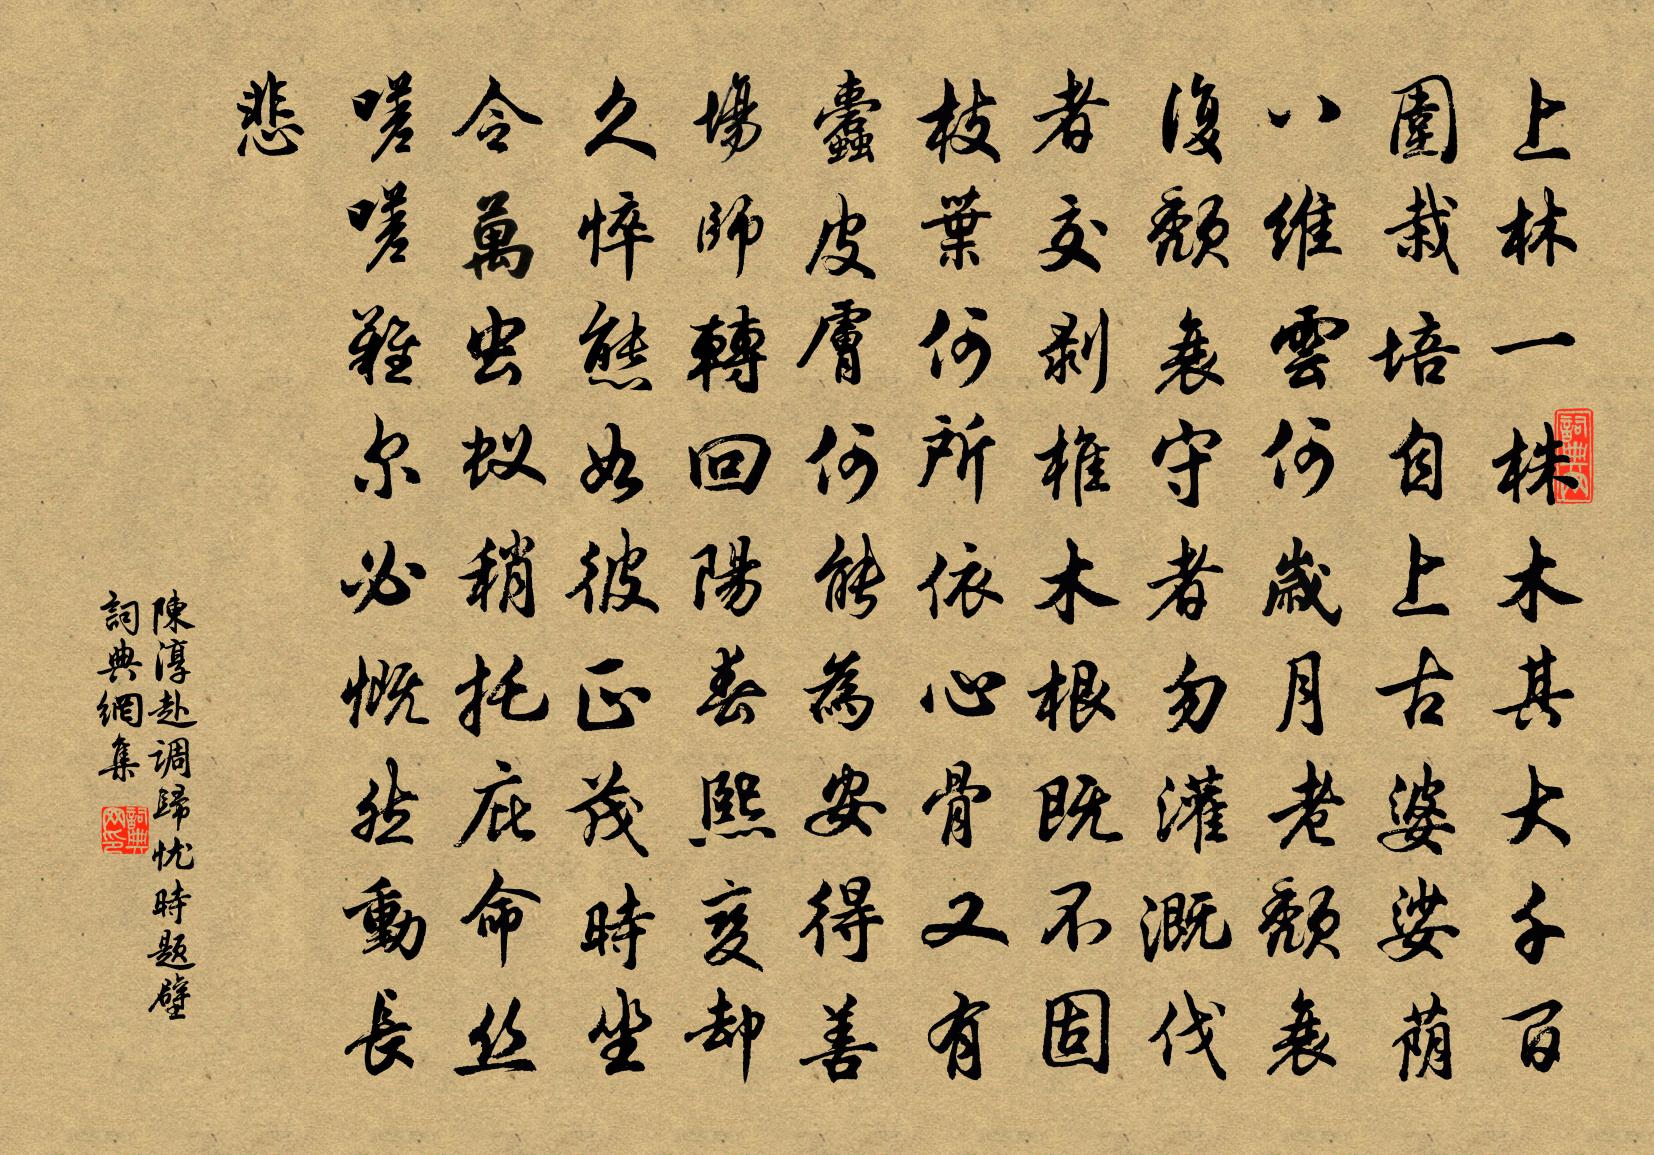 上林一株木其大千百
圍栽培自上古婆娑荫
八維雲何歲月老颓衰
復颓衰守者勿灌溉伐
者交剥椎木根既不固
枝葉何所依心骨又有
蠹皮膚何能為安得善
場師轉回陽春熙变却
久悴態如彼正茂時坐
令萬虫蚁稍托庇命丝
嗟嗟難尔必慨然動長
悲
陳淳赴调歸忧時题壁
詞典網集
詞典网
詞典网印